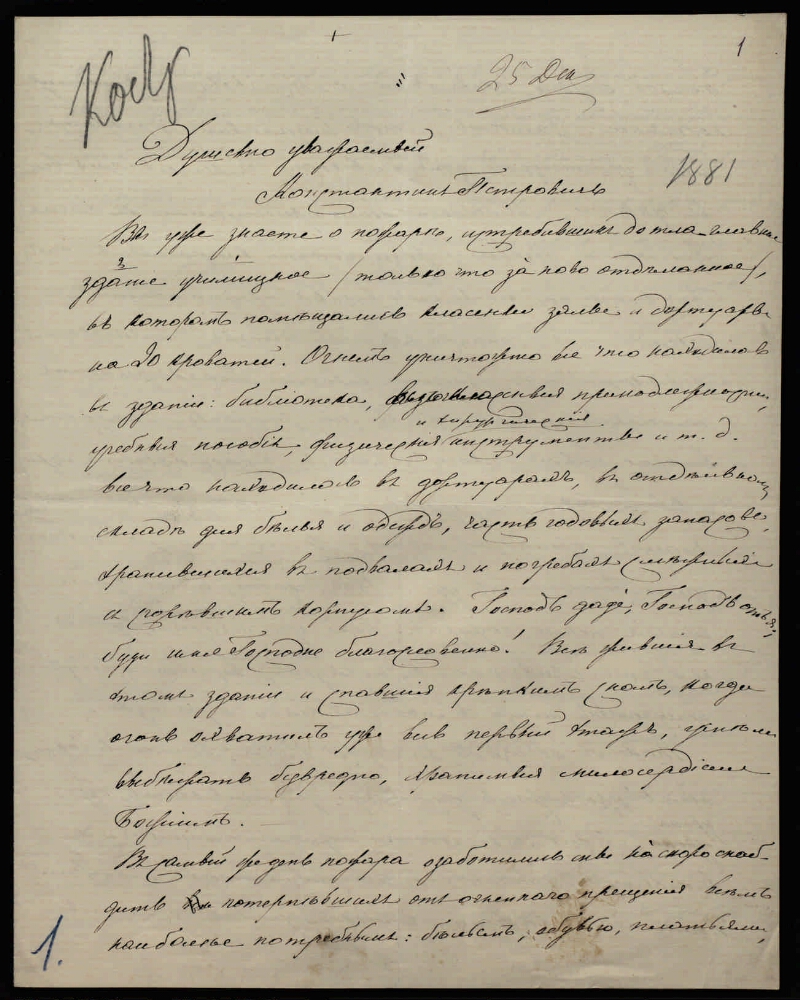 1
25 Дек
1881
Душевно уважаемый
Константинъ Петровичъ
Вы уже знаете о пожарѣ, истребившемъ до тла главное
зданіе училищное (только что за ново отдѣланное),
въ которомъ помѣщались классныя залы и дортуаръ
на 20 кроватей. Огнемъ уничтожено все что находилось
въ зданіи: библіотека, классныя принадлежности,
учебныя пособія, физическія и хирургическія инструменты и т. д.
все что находилось въ дортуарахъ, въ отдѣльномъ
складѣ для бѣлья и одеждъ, часть годовыхъ запасовъ,
хранившихся въ подвалахъ и погребахъ смежныхъ
съ горѣвшимъ корпусомъ. Господь даде, Господь отъя,
буди имя Господне благословенно! Всѣ жившія въ
этомъ зданіи и спавшія крѣпкимъ сномъ, когда
огонь охватилъ уже весь первый этажъ, успѣли
выбѣжать безвредно, хранимыя милосердіемъ
Божіимъ.
Въ самый же день пожара озаботились мы на скоро снаб-
дить потерпѣвшихъ отъ огненнаго прещенія всѣмъ
наиболѣе потребнымъ: бѣльемъ, обувью, платьями,
1.